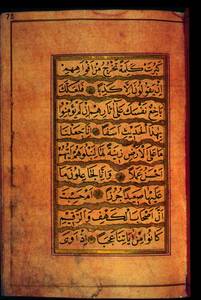 كَبُرَتْ كَلِمَةً تَخْرُجُ مِنْ أَفْوَاهِهِمْ
إِنْ يَقُولُونَ إِلَّا كَذِبًا فَلَعَلَّكَ
بَاخِعٌ نَفْسَكَ عَلَى آثَارِهِمْ إِنْ لَمْ يُؤْمِنُوا
بِهَذَا الْحَدِيثِ أَسَفًا إِنَّا جَعَلْنَا
مَا عَلَى الْأَرْضِ زِينَةً لَهَا لِنَبْلُوَهُمْ أَيُّهُمْ
أَحْسَنُ عَمَلًا وَإِنَّا لَجَاعِلُونَ مَا
عَلَيْهَا صَعِيدًا جُرُزًا أَمْ حَسِبْتَ
أَنَّ أَصْحَابَ الْكَهْفِ وَالرَّقِيمِ
كَانُوا مِنْ آيَاتِنَا عَجَبًا إِذْ أَوَى